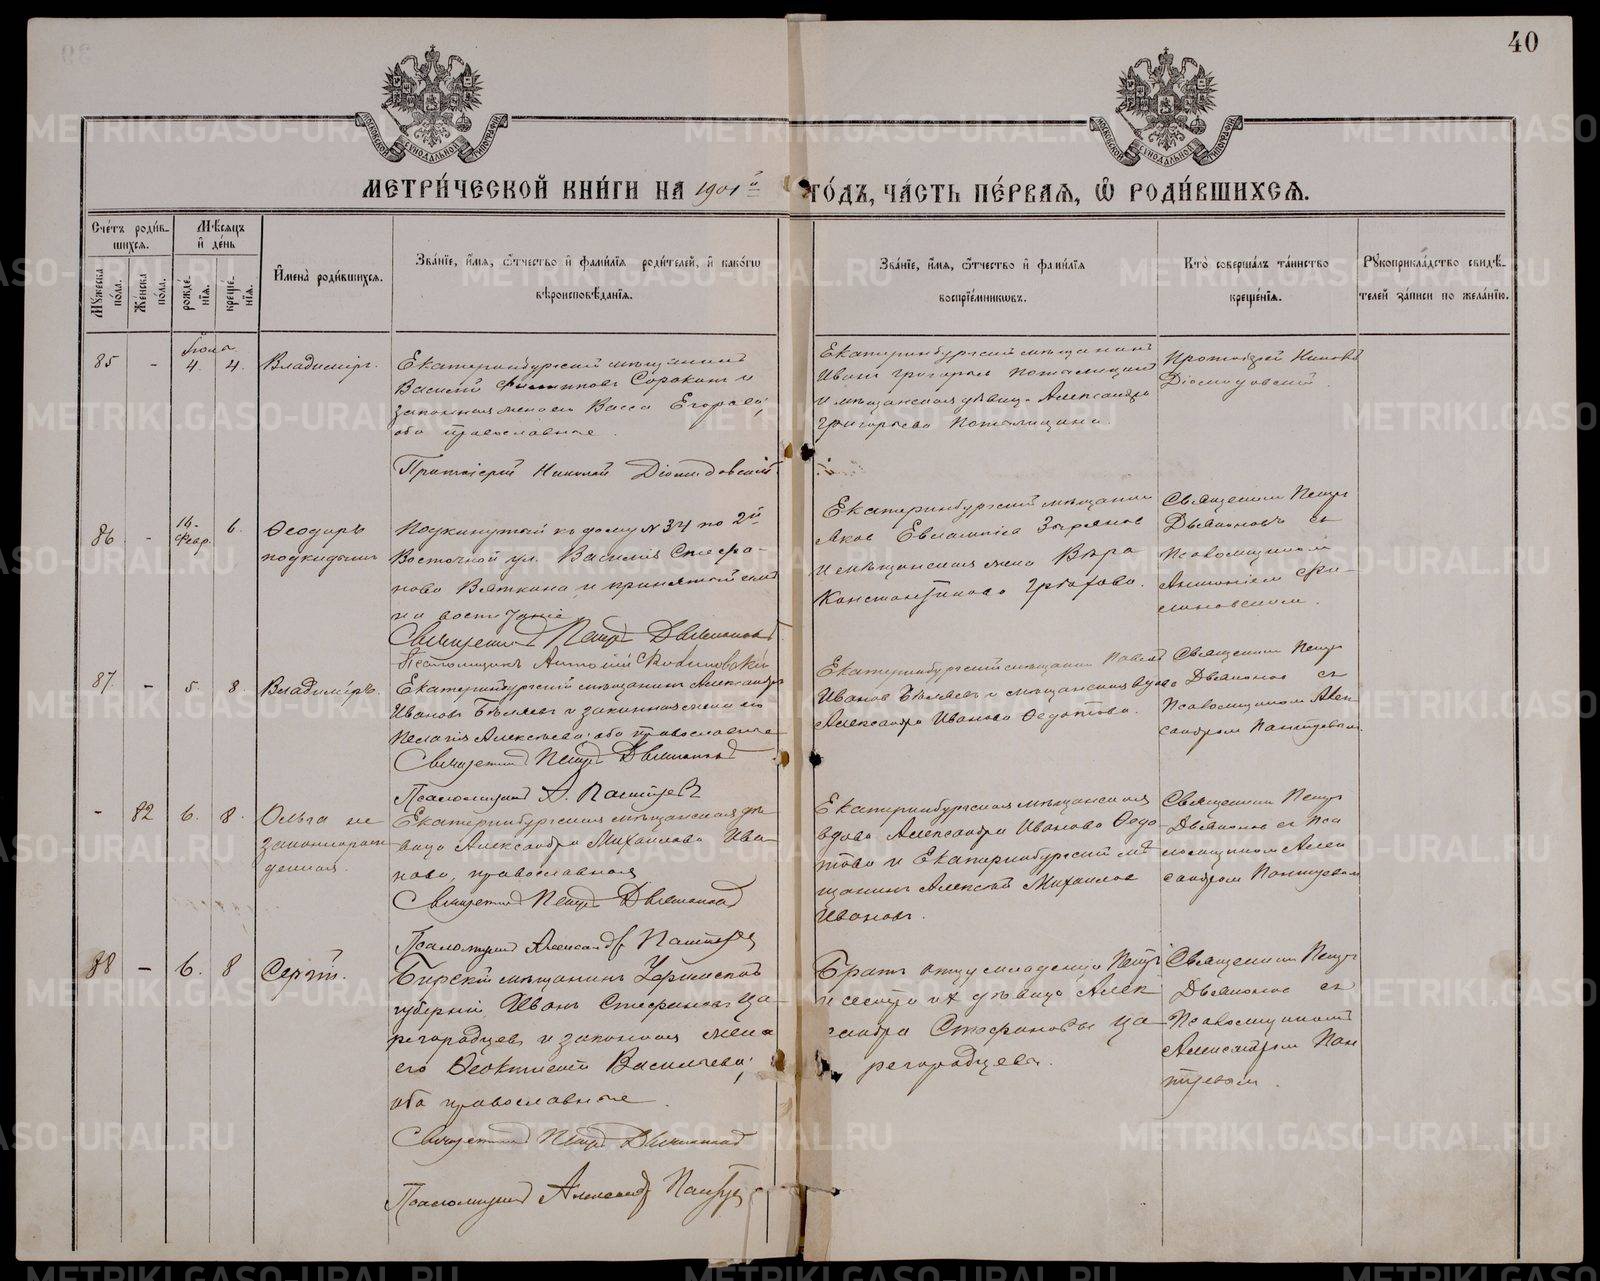 40
МОСКОВСКОЙ СѴНОДАЛЬНОЙ ТИПОГРАФІИ
МОСКОВСКОЙ СѴНОДАЛЬНОЙ ТИПОГРАФІИ
МЕТРИ́ЧЕСКОЙ КНИ́ГИ НА 1901й ГО́ДЪ, ЧА́СТЬ ПЕ́РВАЯ, Ѽ РОДИ́ВШИХСЯ.
Сче́тъ роди́в-
шихся.
Мꙋжеска по́ла.
Же́нска по́ла.
Мѣ́сяцъ
и҆ де́нь
рожде́-
нїя.
креще́-
нїя.
И҆мена̀ роди́вшихся.
Зва́нїе, и҆́мя, ѻ҆́тчество и҆ фами́лїя роди́телей, и҆ како́гѡ
вѣроисповѣ́данїя.
Зва́нїе, и҆́мя, ѻ҆́тчество и҆ фами́лїя
воспрїе́мникѡвъ.
Кто̀ соверша́лъ та́инство
креще́нїя.
Рꙋкоприкла́дство свидѣ́-
телей за́писи по жела́нїю.
Іюля
85 - 4. 4. Владиміръ.
Екатеринбургскій мѣщанинъ
Василій Филипповъ Сорокинъ и
законная жена его Васса Егорова;
оба православные.
Протоіерей Николай Діомидовскій
Екатеринбургскій мѣщанинъ
Иванъ Григорьевъ Потаскуевъ
и мѣщанская дѣвица Александра
Григорьева
Протоіерей Николай
Діомидовскій.
86 - 14. Февр. 6. Ѳеодоръ
подкидышъ
Подкинутый къ дому № 34 по 2й
Восточной ул. Василія Стефа-
нова Вяткина и принятый имъ
на воспитаніе
Священникъ Петръ Дьяконовъ
Псаломщикъ Антоній
Екатеринбургскій мѣщанинъ
Яковъ Евлампіевъ Зырянов
и мѣщанская жена Вѣра
Константинова Грѣхова.
Священникъ Петръ
Дьяконовъ съ
Псаломщикомъ
Антоніемъ
87 - 5. 8. Владиміръ.
Екатеринбургскій мѣщанинъ Александръ
Ивановъ Бѣляевъ и законная жена его
Пелагія Алексѣева; оба православные
Священникъ Петръ Дьяконовъ
Псаломщикъ А.
Екатеринбургскій мѣщанинъ Павелъ
Ивановъ Бѣляевъ и мѣщанская вдова
Александра Иванова Ѳедотова.
Священникъ Петръ
Дьяконовъ съ
Псаломщикомъ Алек-
сандромъ
- 82 6. 8. Ольга не
законнорож-
денная.
Екатеринбургская мѣщанская дѣ-
вица Александра Михайлова Ива-
нова, православная
Священникъ Петръ Дьяконовъ
Псаломщикъ Александръ
Екатеринбургская мѣщанская
вдова Александра Иванова Ѳедо-
това и Екатеринбургскій мѣ
щанинъ Алексѣй Михайловъ
Ивановъ.
Священникъ Петръ
Дьяконовъ съ Пса
ломщикомъ Алек
сандромъ
88 - 6. 8 Сергѣй.
Бирскій мѣщанинъ Уфимской
губерніи, Иванъ Стефановъ Ца-
регородцевъ и законная жена
его Ѳеоктиста Васильева;
оба православные.
Священникъ Петръ Дьяконовъ
Псаломщикъ Александръ
Братъ отцу младенца Петръ
и сестра ихъ дѣвица Алек-
сандра Стефановы Ца-
регородцевы.
Священникъ Петръ
Дьяконовъ съ
Псаломщикомъ
Александромъ
METRIKI.GASO-URAL.RU